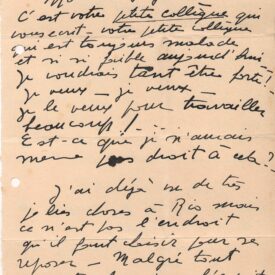 C'est votre petite collègue qui
vous écrit - votre petite collègue
qui est toujours malade
et si si faible aujourd'hui
Je voudrais tant être forte!
Je veux - je veux -
Je le veux pour travailler
beaucoup!
Est-ce que je n'aurais
même pas droit à cela?
J'ai déjà vu de très
jolies choses à Rio mais
ce n'est pas l'endroit
qu'il faut choisir pour se
reposer - Malgré tout